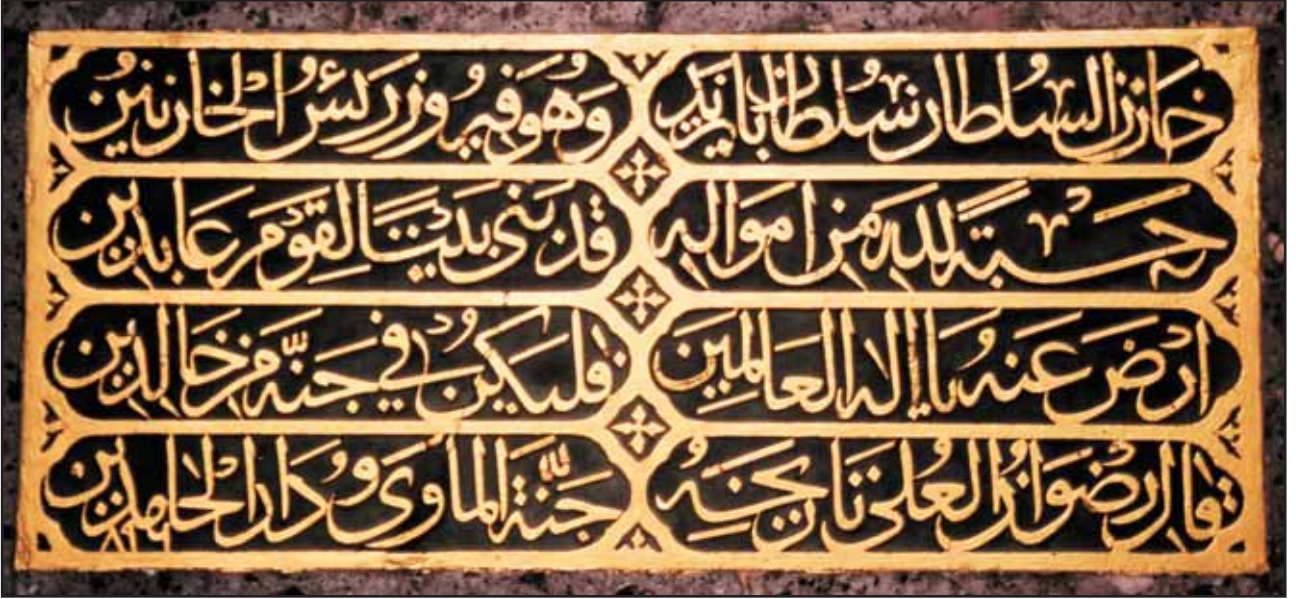 خازن السلطان سلطان بايزيد وهو فيروز رئس الخازنين
حسبة لله من امواله قد بنى بيتا لقوم عابدين
ارض عنه يا اله العالمين فليكن في جنة من خالدين
قال رضوان العلى تاريخه جنة المأوى ودار الحامدين
٨٩٦